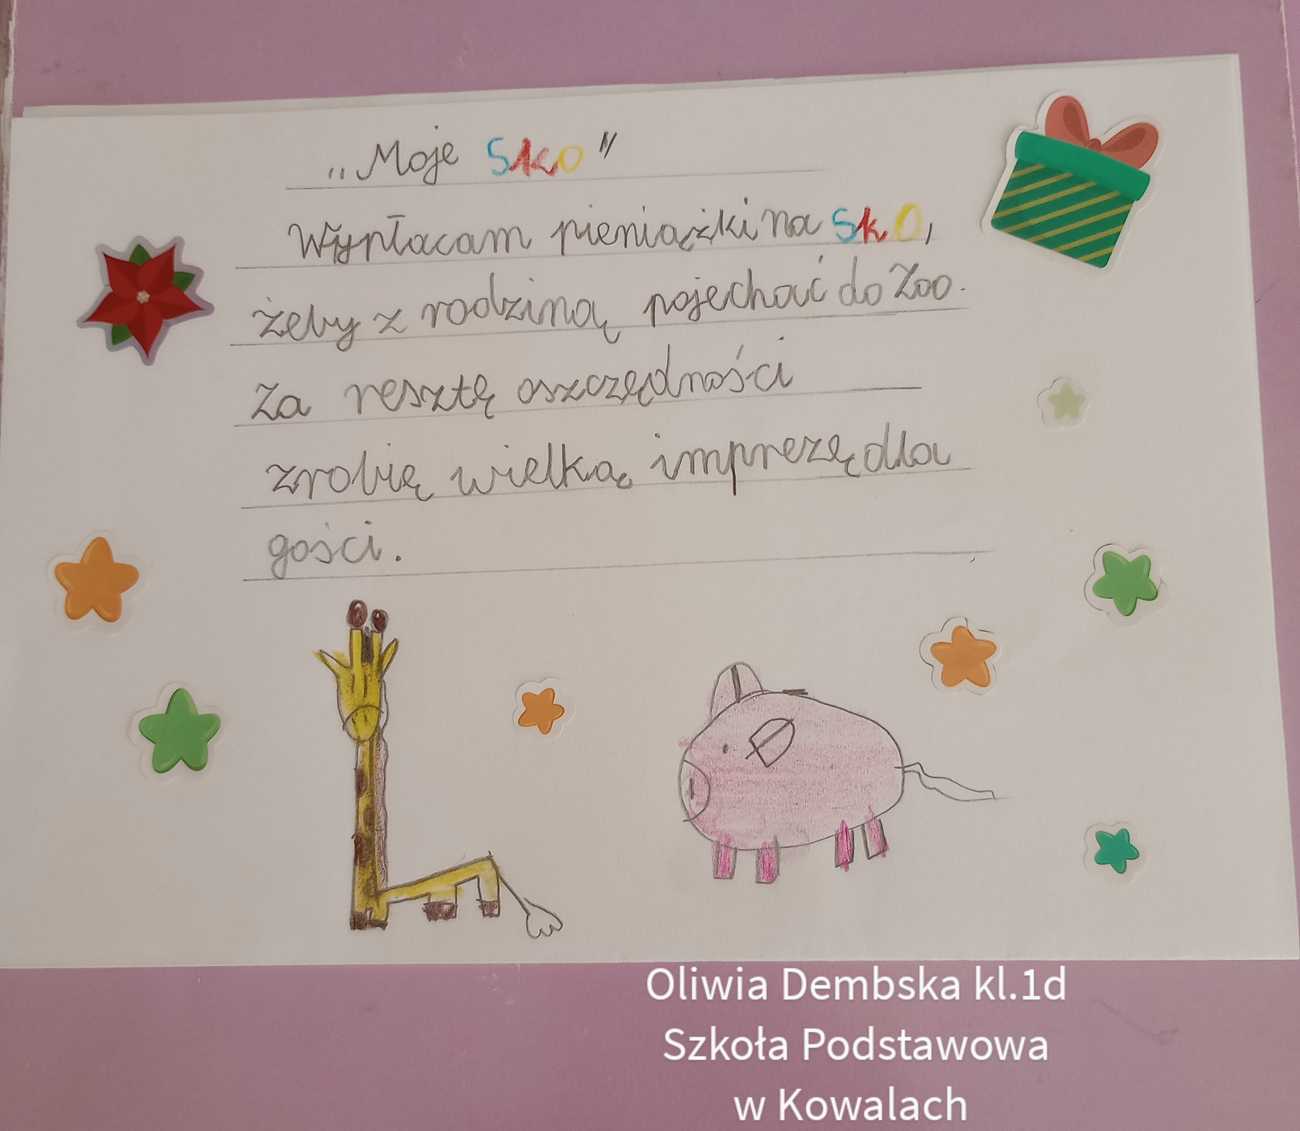 „Moje SKO"
Wypłacam pieniążki na SKO,
żeby z rodziną pojechać do Zoo.
Za resztę oszczędności
zrobię wielką imprezę dla
gości.
Oliwia Dembska kl.1d
Szkoła Podstawowa
w Kowalach